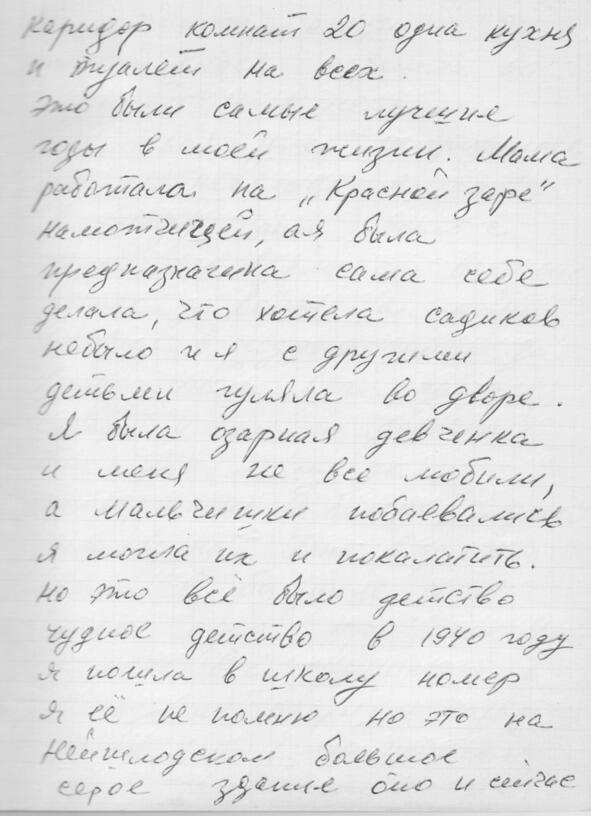 каридор комнат 20 одна кухня
и туалет на всех.
это были самые лучшие
годы в моей жизни. Мама
работала на „Красной заре"
намотчицей, а я была
предназначина сама себе
делала, что хотела садиков
небыло и я с другими
детьми гуляла во дворе.
Я была озарная девченка
и меня не все любили,
а мальчишки побаевались
я могла их и поколатить.
но это всё было детство
чудное детство в 1940 году
я пошла в школу номер
я её не помню но это на
Нейшлодском большое
серое здание оно и сейчас